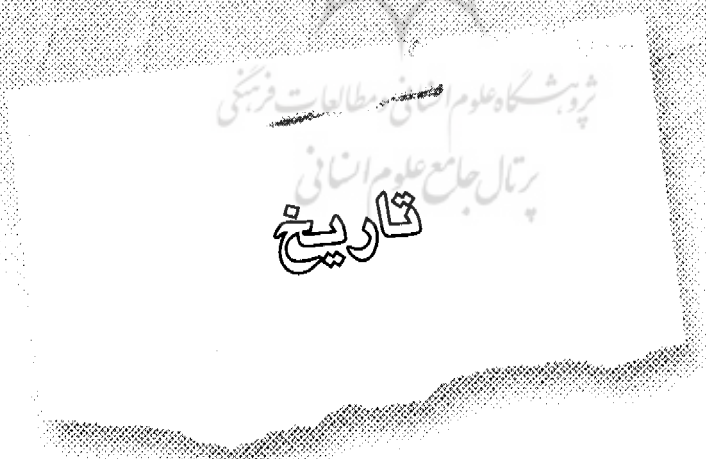 پژوهشگاه علوم انسانی و مطالعات فرهنگی
پرتال جامع علوم انسانی
تاریخ